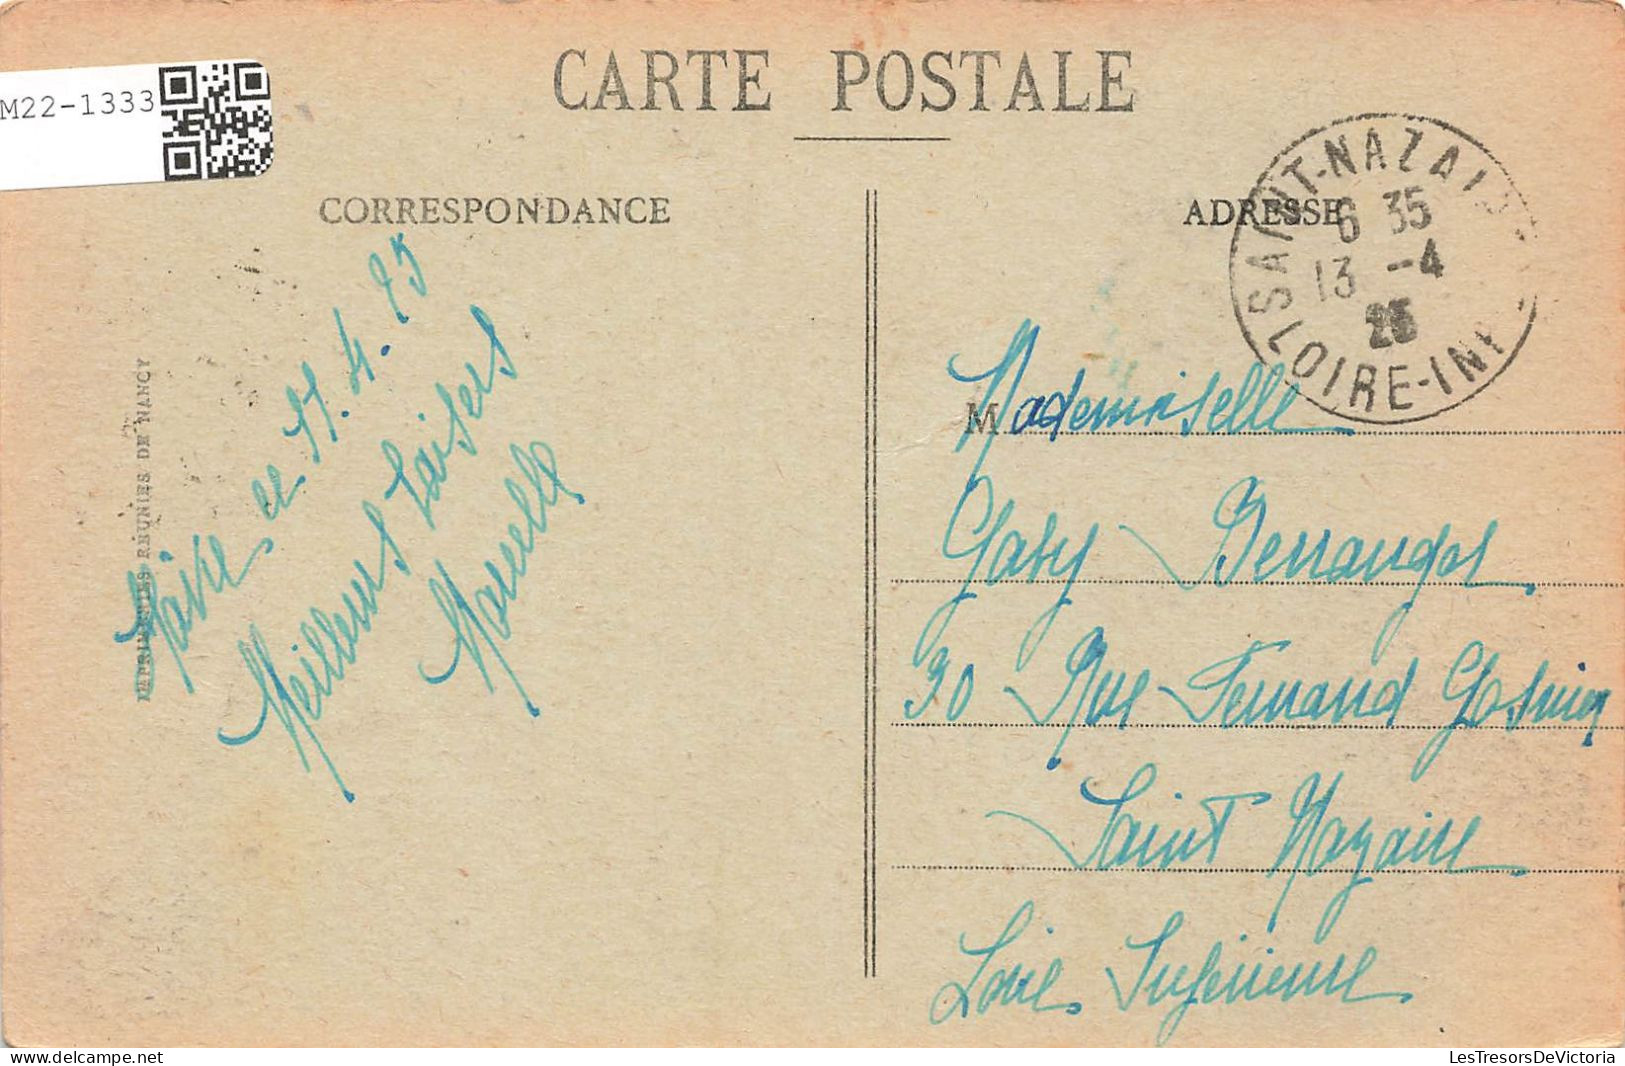 M22-1333
CARTE POSTALE
CORRESPONDANCE
ADRESSE
SAINT-NAZAIRE
6 35
13 -4
25
LOIRE-INF
IMPRIMERIES RÉUNIES DE NANCY
ce 11.4.25
Meilleurs baisers
Marcelle
Mademoiselle
Gaby
30 Rue Fernand
Saint Nazaire
Loire Inférieure
LesTresorsDeVictoria